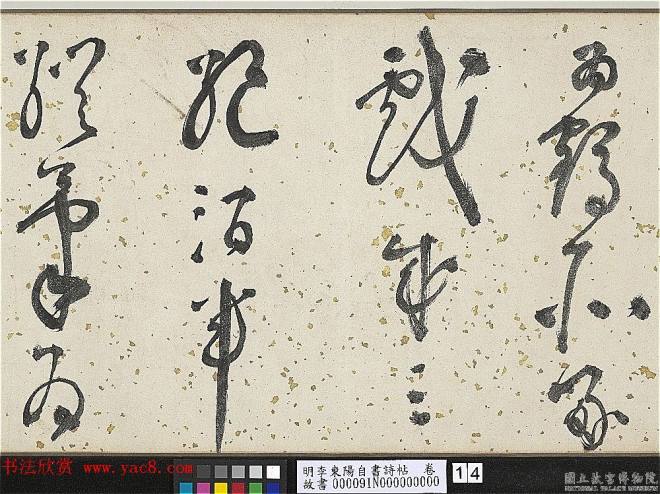 鶴亦
戲成三
絕酒半
縱筆為
书法欣赏 www.yac8.com
明李東陽自書詩帖 卷
故書 000091N000000000
14
國立故宮博物院
NATIONAL PALACE MUSEUM